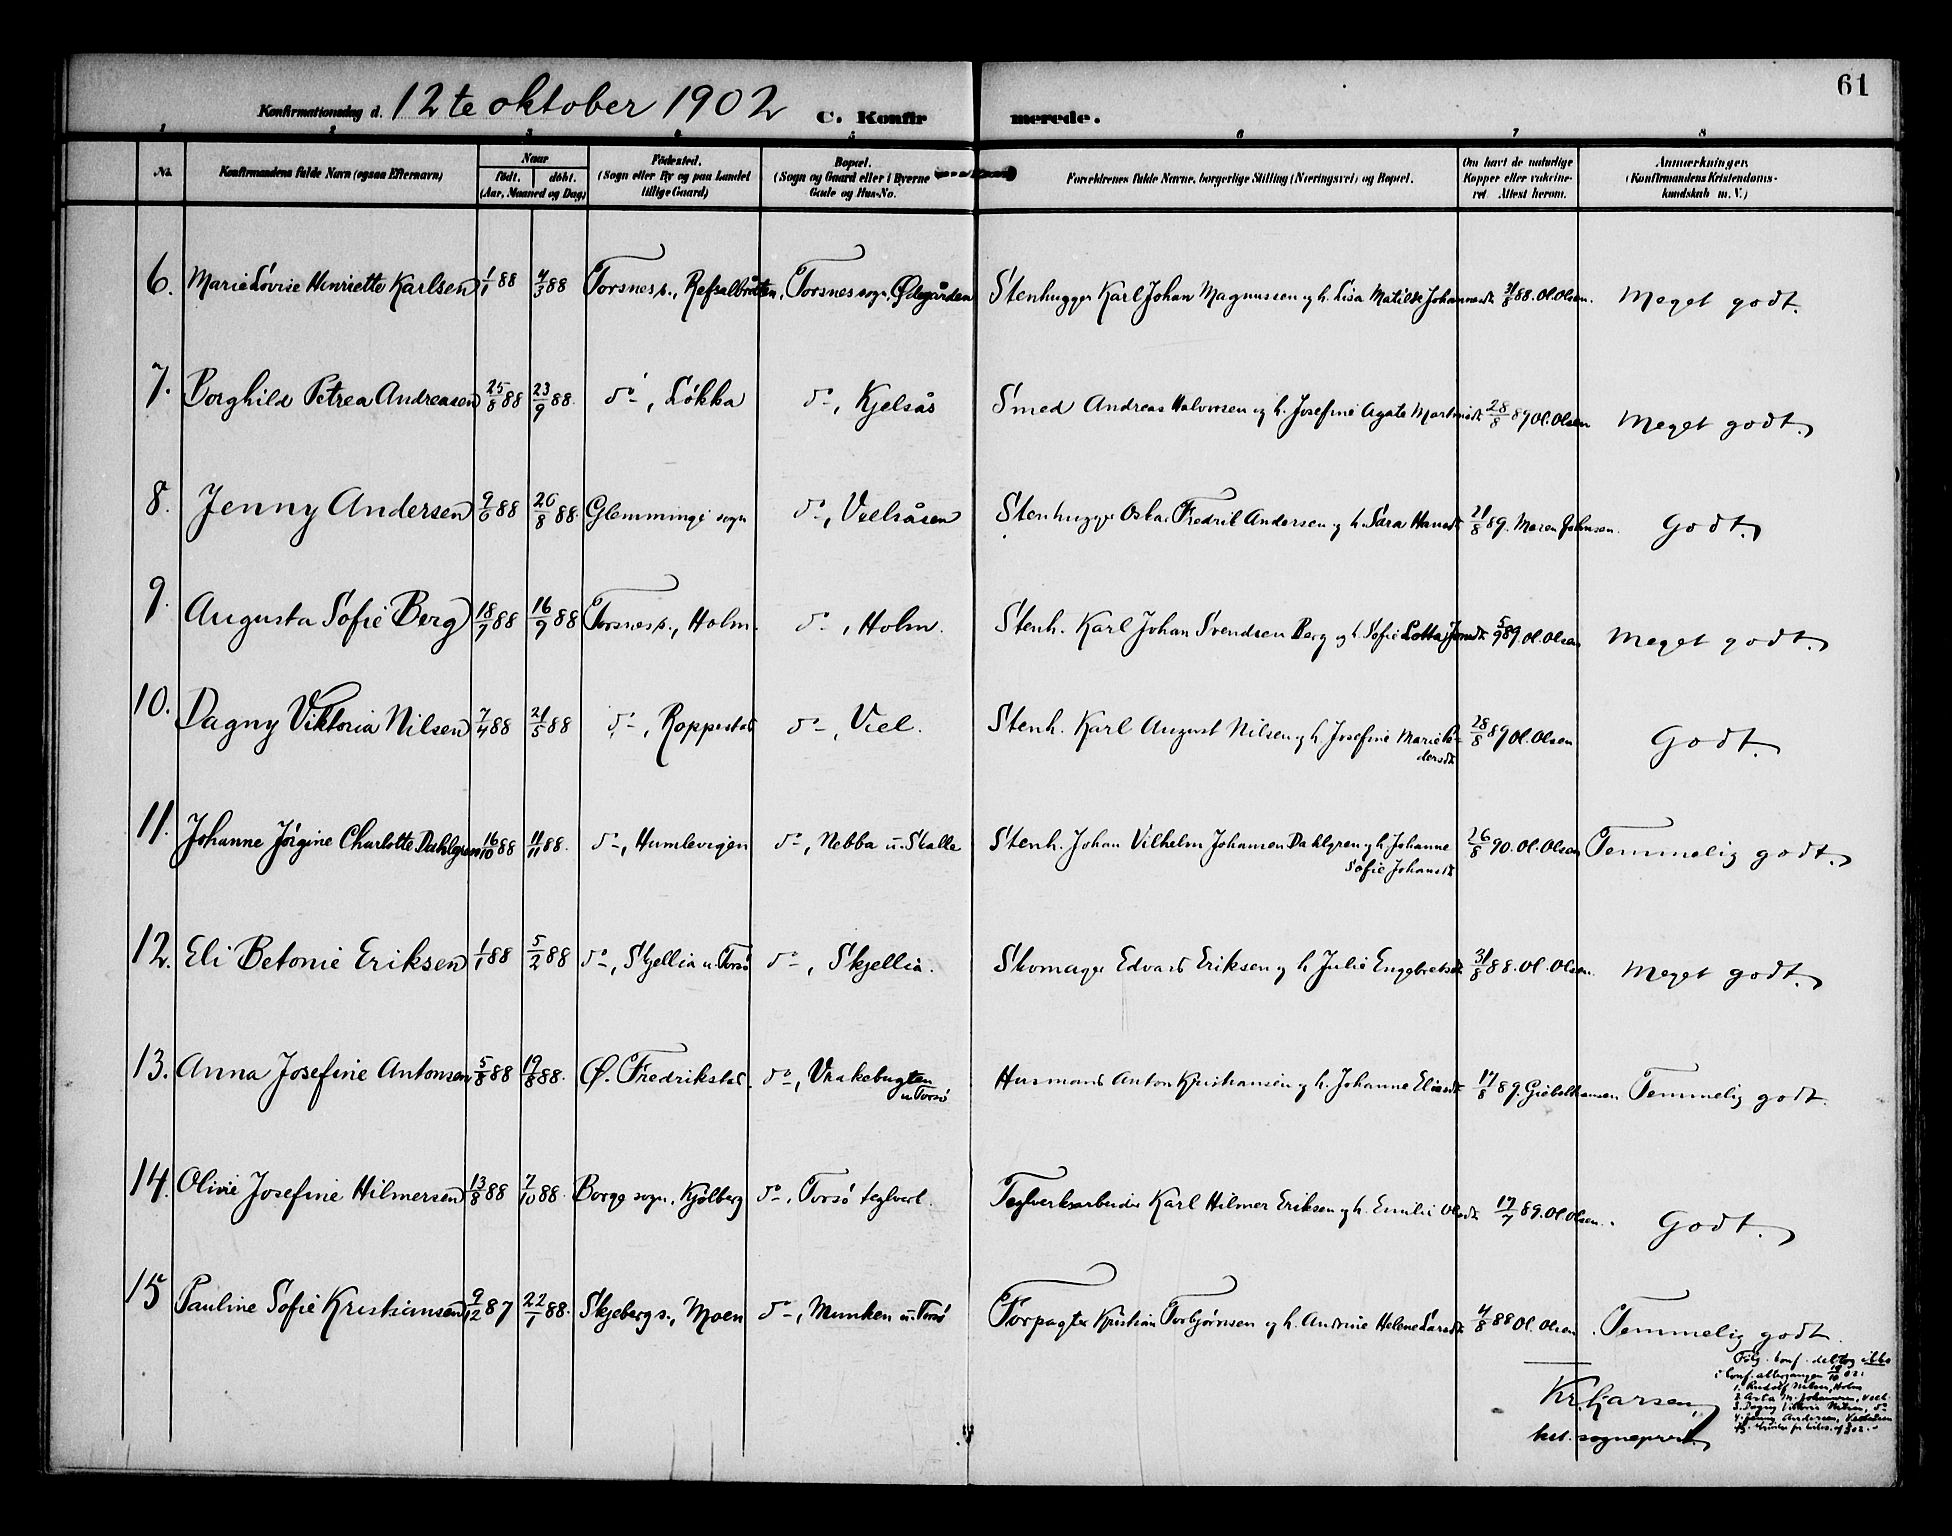 61
Konfirmationsdag d. 12te oktober 1902 C. Konfirmerede.
1 2 3 4 5 6 7 8
No. Konfirmandens fulde Navn (ogsaa Efternavn) Naar født. døbt. (Aar, Maaned og Dag) Fødested. (Sogn eller By og paa Landet tillige Gaard) Bopæl. (Sogn og Gaard eller i Byerne Gade og Hus-No. Forældrenes fulde Navne, borgerlige Stilling (Næringsvei) og Bopæl. Om havt de naturlige Kopper eller vakcineret. Attest herom. Anmærkninger. (Konfirmandens Kristendomskundskab m. V.)
6. Marie Lovise Henriette Karlsen 1/1 88 4/3 88 Torsnes s., Refsalbråtten, Torsnes sogn, Ødegården Stenhugger Karl Johan Magnussen og h. Lisa Matilde Johannesdt. 31/8 88. Ol. Olsen. Meget godt.
7. Borghild Petrea Andreasen 25/8 88 23/9 88. do, Løkka do, Kjelsås Smed Andreas Halvorsen og h. Josefine Agate Martinsdt. 28/8 89 Ol. Olsen Meget godt.
8. Jenny Andersen 9/6 88 26/8 88. Glemminge sogn do, Veelsåsen Stenhugger Oskar Fredrik Andersen og h. Sara Hansdt. 21/8 89. Maren Johnsen. Godt.
9. Augusta Sofie Berg 18/7 88 16/9 88 Torsnes s., Holm. do, Holm. Stenh. Karl Johan Svendsen Berg og h. Sofie Lotta Jonsdt. 5/9 89 Ol. Olsen Meget godt.
10. Dagny Viktoria Nilsen 7/4 88 21/5 88 do, Roppestad do, Viel. Stenh. Karl August Nilsen og h. Josefine Marie
dersdt. 28/8 89 Ol. Olsen Godt.
11. Johanne Jørgine Charlotte Dahlgren 16/10 88 11/11 88. do, Humlevigen do, Nebba u. Skalle Stenh. Johan Vilhelm Johansen Dahlgren og h. Johanne
Sofie Johansdt. 26/8 90. Ol. Olsen Temmelig godt.
12. Eli Betonie Eriksen 1/1 88 5/2 88 do, Skjellia u. Torsø do, Skjellia. Skomager Edvard Eriksen og h. Julie Engebretsdt. 31/8 88. Ol. Olsen. Meget godt.
13. Anna Josefine Antonsen 5/8 88 19/8 88. Ø. Fredrikstad. do, Vrakebugten
u. Torsø Husmand Anton Kristiansen og h. Johanne Eliasdt. 17/8 89. Temmelig godt.
14. Olivie Josefine Hilmersen 13/8 88 7/10 88. Borge sogn, Kjølberg do, Torsø teglverk. Teglverksarbeider Karl Hilmer Eriksen og h. Emilie Olsdt. 17/7 89. Ol. Olsen. Godt.
15 Pauline Sofie Kristiansen 9/12 87 22/1 88. Skjeberg s., Moen do, Munken u. Torsø Forpagter Kristian Torbjørnsen og h. Andrine Helene Larsdt. 4/8 88 Ol. Olsen Temmelig godt.
Følg. konf. deltog ikke
i konf. altergangen 19/10 02:
1. Rudolf Nilsen, Holm
2. Asta M. Johansen, Veel.
3. Dagny Viktoria Nilsen, do
4. Jenny Andersen, Veelsåsen
Kr. Larsen,
kst. sogneprest.